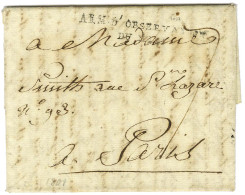 ARM. D'OBSERV.
DU
a Madame
Smith rue St Lazare
No 93.
a Paris